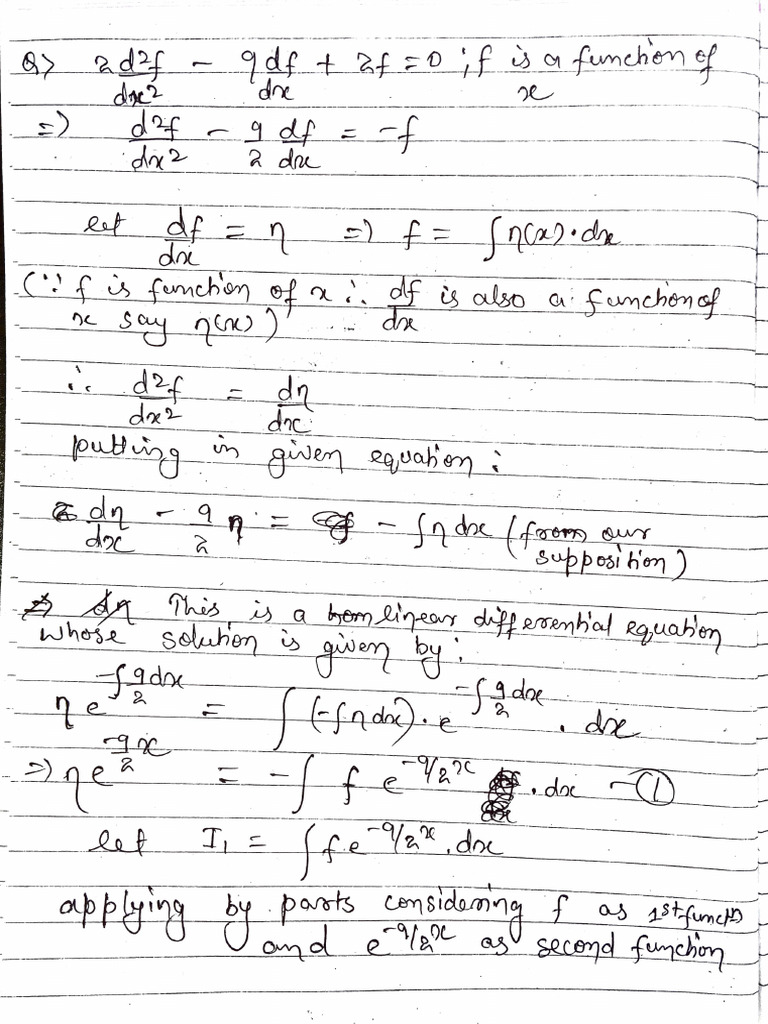 Q> 2 d²f/dx² - 9 df/dx + 2f = 0 ; f is a function of x
=> d²f/dx² - 9/2 df/dx = -f
let df/dx = η => f = ∫η(x)·dx
(∵ f is function of x ∴ df/dx is also a function of
x say η(x))
∴ d²f/dx² = dη/dx
putting in given equation :
dη/dx - 9/2 η = - ∫η dx (from our
supposition)
This is a linear differential equation
whose solution is given by :
η e^(-∫9/2 dx) = ∫(-∫η dx)· e^(-∫9/2 dx) . dx
=> η e^(-9/2 x) = -∫ f e^(-9/2 x) . dx —①
let I₁ = ∫ f e^(-9/2 x) . dx
applying by parts considering f as 1st functn
and e^(-9/2 x) as second function